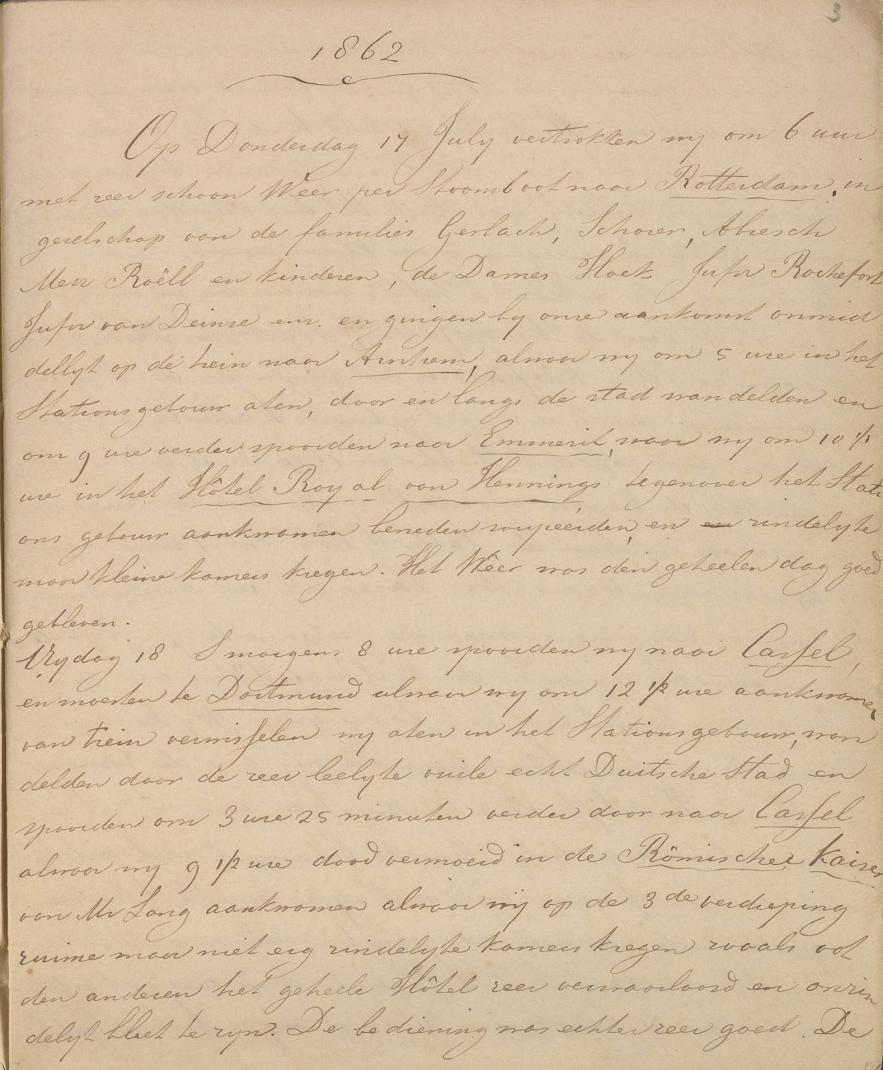 3
1862
Op Donderdag 17 July vertrokken wy om 6 uur
met zeer schoon Weer per Stoomboot naar Rotterdam, in
gezelschap van de families Gerlach, Schorer, Abresch
Mevr Roëll en kinderen, de Dames Hoek Jufvr Rochefort
Jufvr van Deinse enz. en gingen by onze aankomst onmid
dellyk op de trein naar Arnhem, alwaar wy om 5 ure in het
Stationsgebouw aten, door en langs de stad wandelden en
om 9 ure verder spoorden naar Emmerik, waar wy om 10 1/2
ure in het Hôtel Royal van Hennings tegenover het Stati
ons gebouw aankwamen beneden soupeerden, en zindelyke
maar kleine kamers kregen. Het Weer was dien geheelen dag goed
gebleven.
Vrydag 18 S morgens 8 ure spoorden wy naar Cassel,
en moesten te Dortmund alwaar wy om 12 1/2 ure aankwamen
van trein verwisselen wy aten in het Stationsgebouw, wan
delden door de zeer leelyke vuile echt Duitsche Stad en
spoorden om 3 ure 25 minuten verder door naar Cassel
alwaar wy 9 1/2 ure dood vermoeid in de Römischer Kaiser
van Mr Lang aankwamen alwaar wij op de 3de verdieping
ruime maar niet erg zindelyke kamers kregen zooals ook
den anderen het geheele Hôtel zeer verwaarloosd en onzin
delyk bleek te zyn. De bediening was echter zeer goed. De